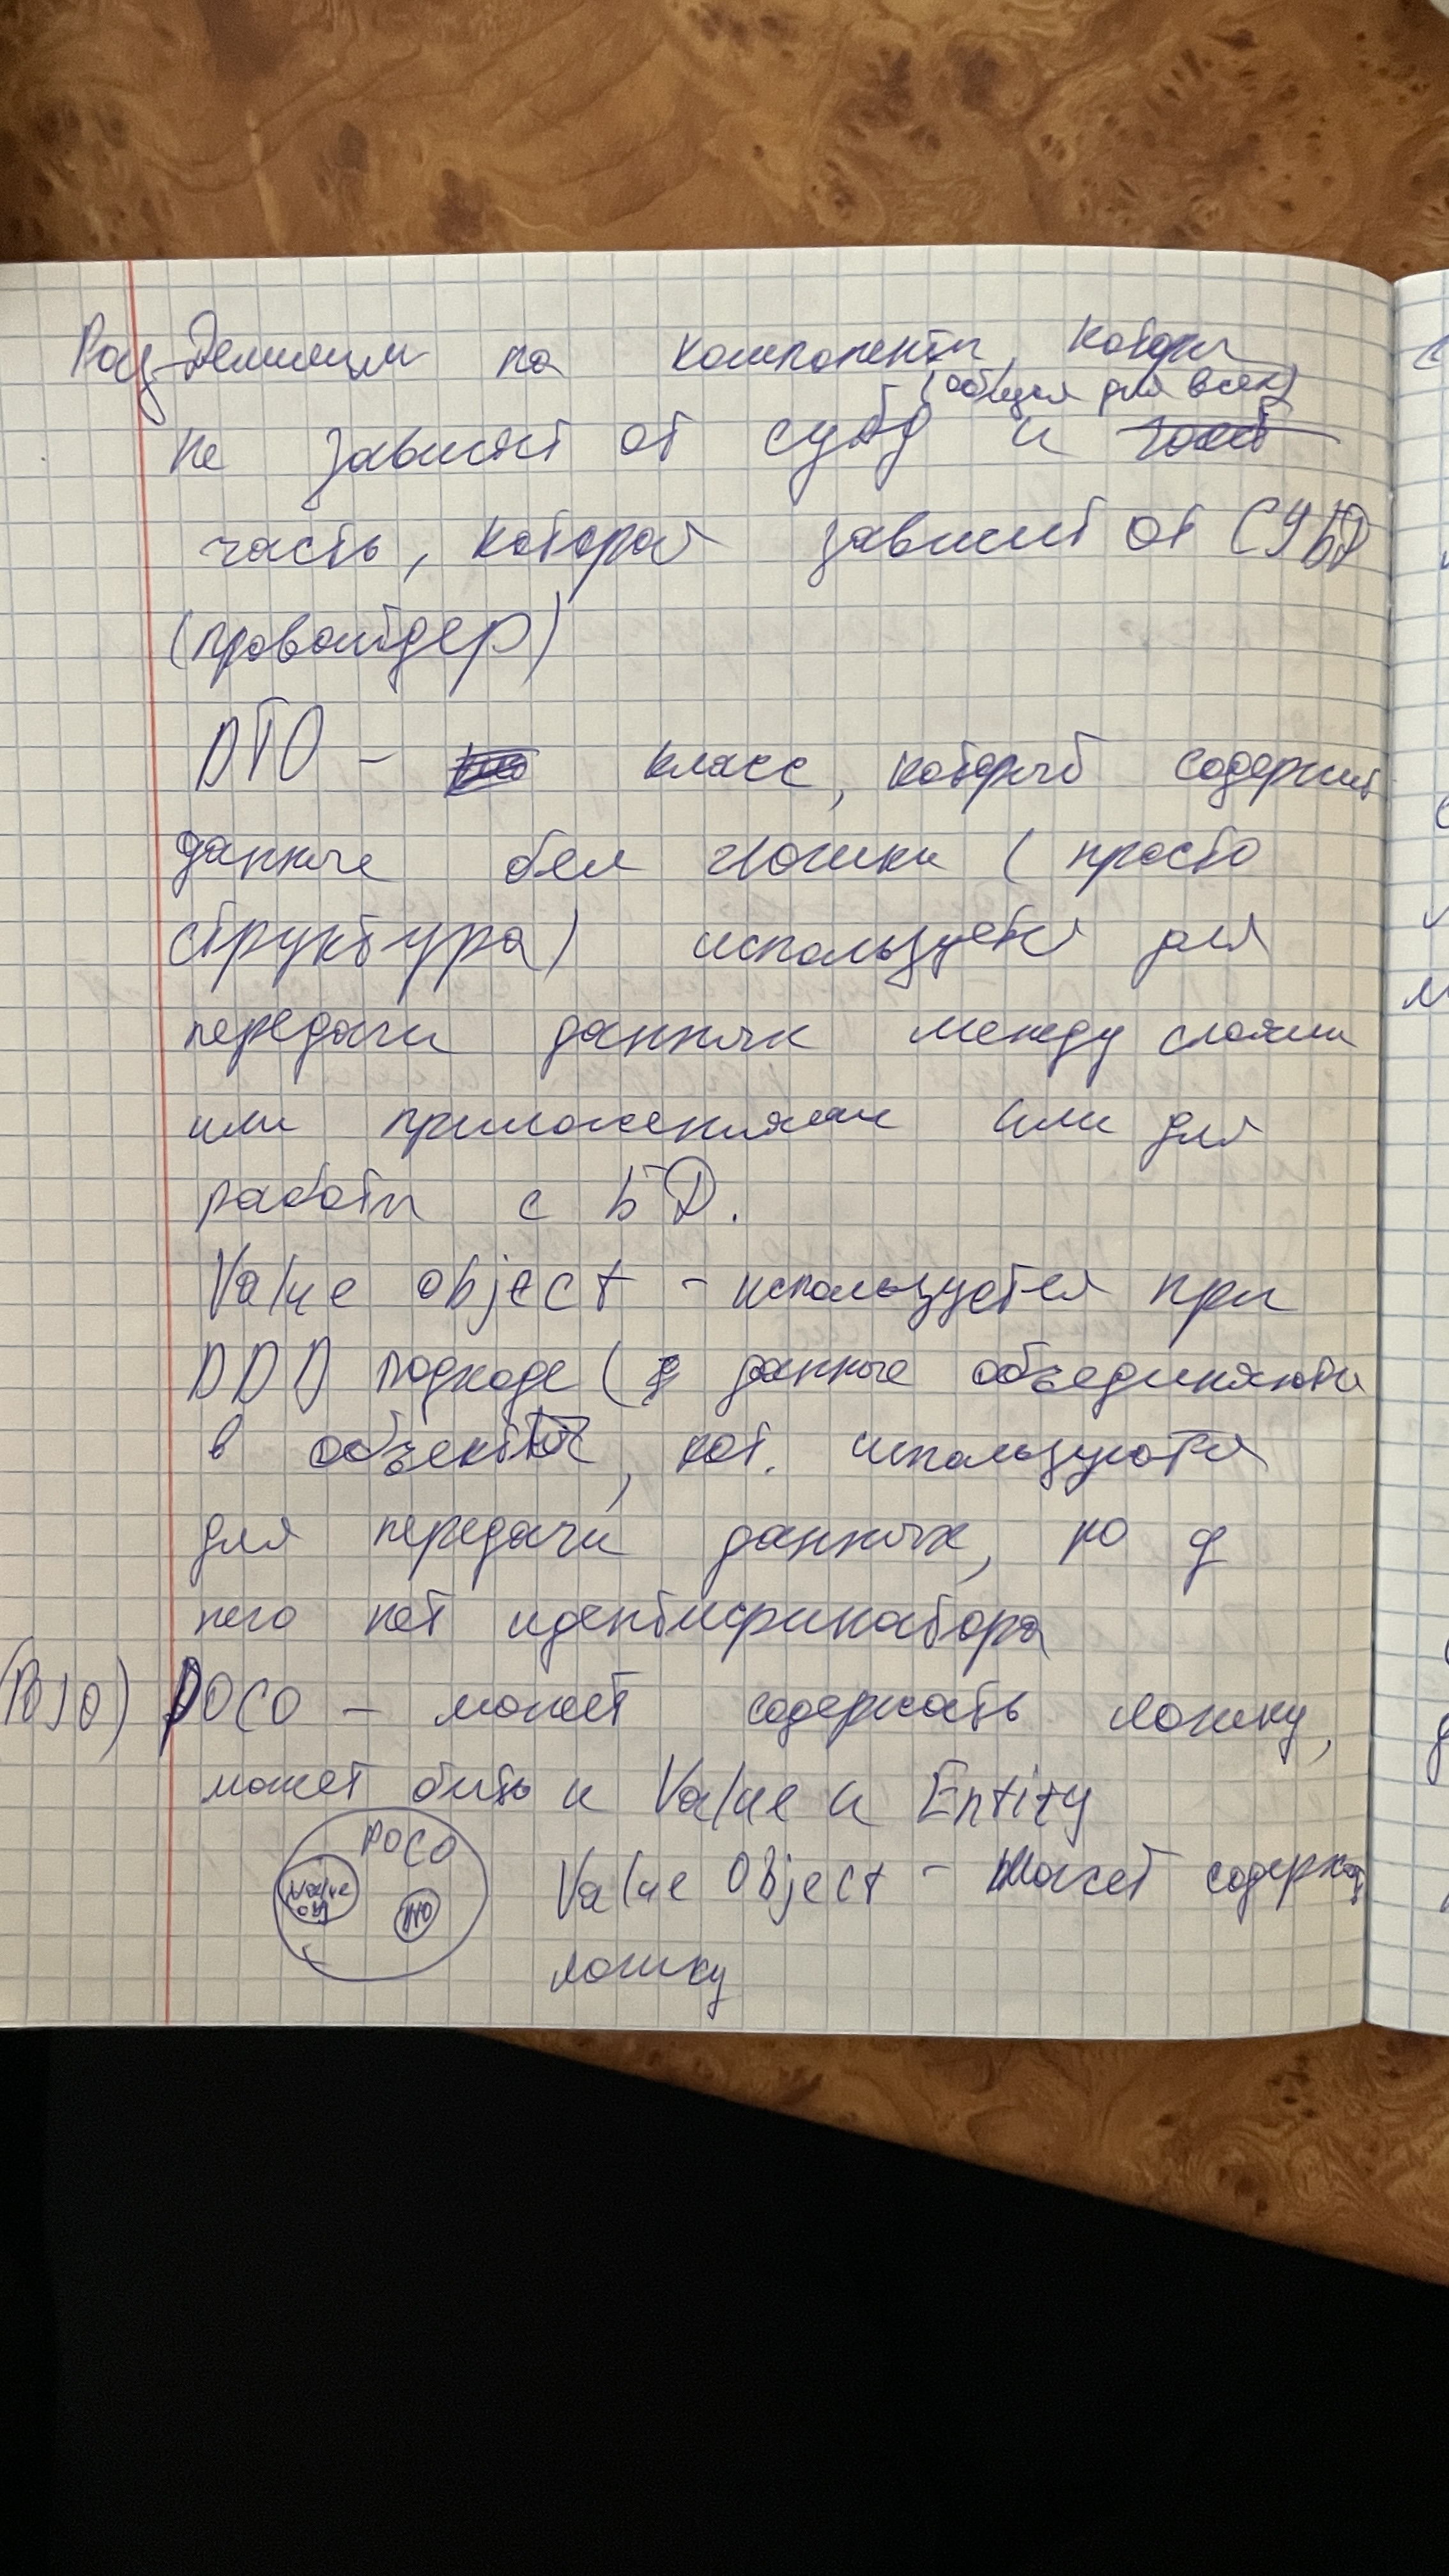 Разделяем на компоненты, которы
(общая для всех)
не зависят от субд и
часть, которая зависит от СУБД
(провайдер)
DTO - класс, который содержит
данные без логики (просто
структура) используется для
передачи данных между слоями
или приложениями или для
работы с БД.
Value object - используется при
DDD подходе ( данные объединяются
в объекты, кот. используются
для передачи данных, но у
него нет идентификатора
(POJO) POCO - может содержать логику,
может быть и Value и Entity
POCO
Value obj
DTO
Value Object - может содержать
логику